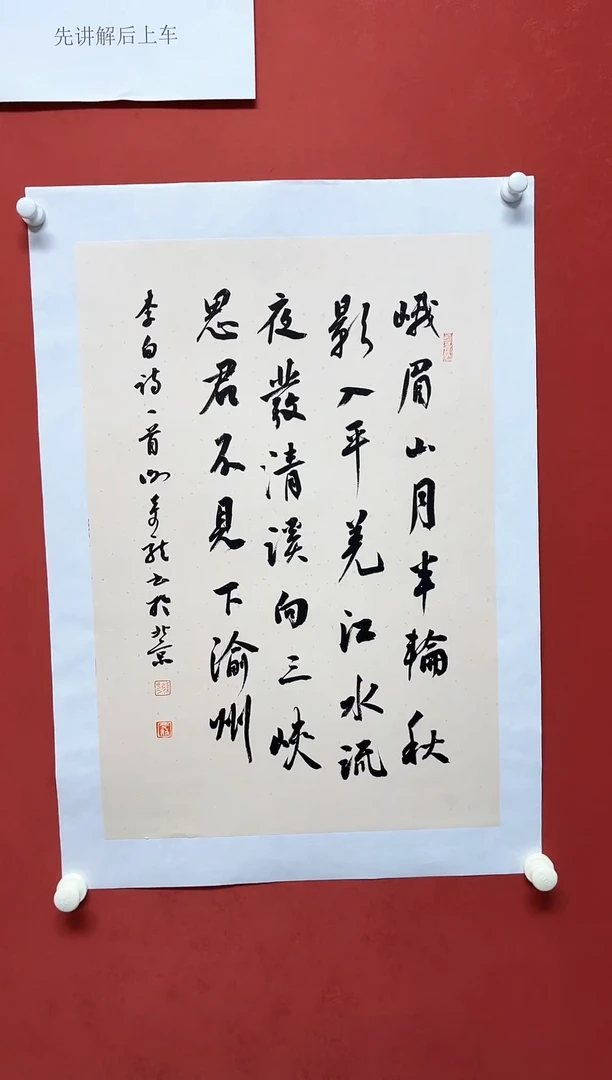 先讲解后上车
峨眉山月半輪秋
影入平羌江水流
夜發清溪向三峡
思君不見下渝州
李白詩一首 书於北京